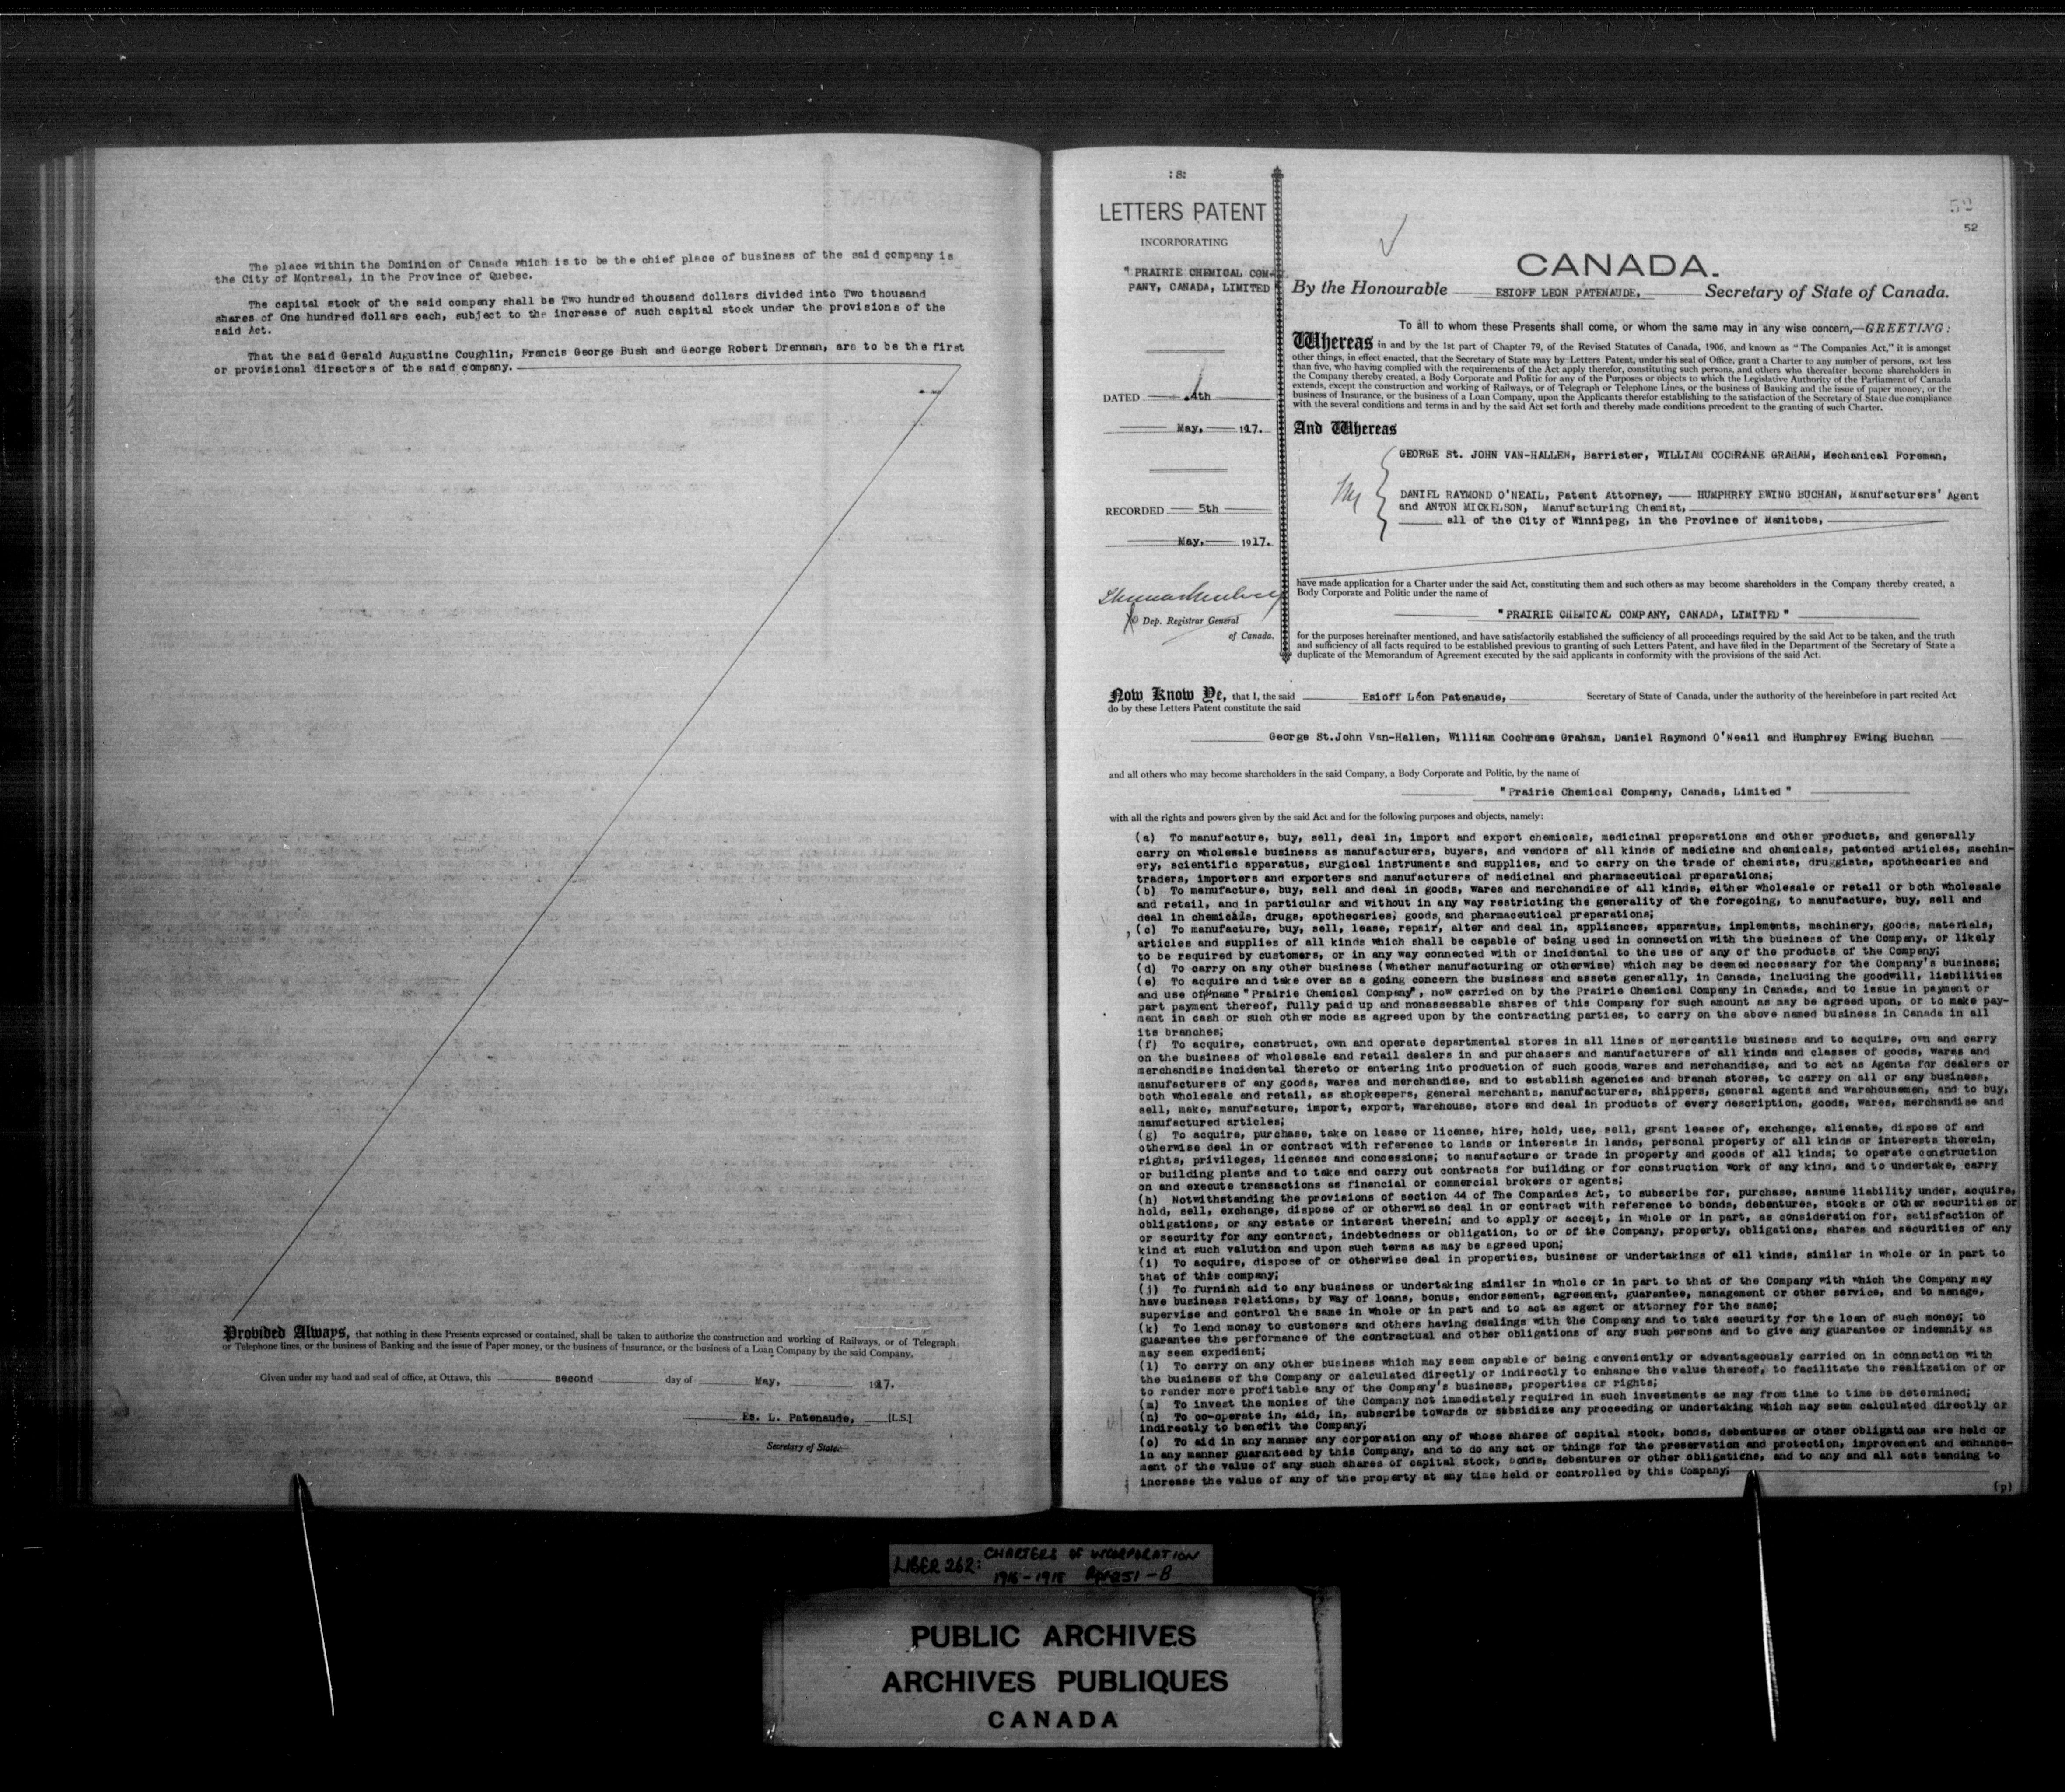 The place within the Dominion of Canada which is to be the chief place of business of the said company is
the City of Montreal, in the Province of Quebec.
The capital stock of the said company shall be Two hundred thousand dollars divided into Two thousand
shares of One hundred dollars each, subject to the increase of such capital stock under the provisions of the
said Act.
That the said Gerald Augustine Coughlin, Francis George Bush and George Robert Drennan, are to be the first
or provisional directors of the said company.
Provided Always, that nothing in these Presents expressed or contained, shall be taken to authorize the construction and working of Railways, or of Telegraph
or Telephone lines, or the business of Banking and the issue of Paper money, or the business of Insurance, or the business of a Loan Company by the said Company.
Given under my hand and seal of office, at Ottawa, this second day of May, 1917.
Es. L. Patenaude, [L.S.]
Secretary of State.
:8:
LETTERS PATENT
INCORPORATING
"PRAIRIE CHEMICAL COM-
PANY, CANADA, LIMITED"
DATED 4th
May, 1917.
RECORDED 5th
May, 1917.
Dep. Registrar General
of Canada.
52
52
CANADA.
By the Honourable ESIOFF LEON PATENAUDE, Secretary of State of Canada.
To all to whom these Presents shall come, or whom the same may in any wise concern,—GREETING:
Whereas in and by the 1st part of Chapter 79, of the Revised Statutes of Canada, 1906, and known as "The Companies Act," it is amongst
other things, in effect enacted, that the Secretary of State may by Letters Patent, under his seal of Office, grant a Charter to any number of persons, not less
than five, who having complied with the requirements of the Act apply therefor, constituting such persons, and others who thereafter become shareholders in
the Company thereby created, a Body Corporate and Politic for any of the Purposes or objects to which the Legislative Authority of the Parliament of Canada
extends, except the construction and working of Railways, or of Telegraph or Telephone Lines, or the business of Banking and the issue of paper money, or the
business of Insurance, or the business of a Loan Company, upon the Applicants therefor establishing to the satisfaction of the Secretary of State due compliance
with the several conditions and terms in and by the said Act set forth and thereby made conditions precedent to the granting of such Charter.
And Whereas
GEORGE St. JOHN VAN-HALLEN, Barrister, WILLIAM COCHRANE GRAHAM, Mechanical Foreman,
DANIEL RAYMOND O'NEAIL, Patent Attorney, — HUMPHREY EWING BUCHAN, Manufacturers' Agent
and ANTON MICKELSON, Manufacturing Chemist,
all of the City of Winnipeg, in the Province of Manitoba,
have made application for a Charter under the said Act, constituting them and such others as may become shareholders in the Company thereby created, a
Body Corporate and Politic under the name of
"PRAIRIE CHEMICAL COMPANY, CANADA, LIMITED"
for the purposes hereinafter mentioned, and have satisfactorily established the sufficiency of all proceedings required by the said Act to be taken, and the truth
and sufficiency of all facts required to be established previous to granting of such Letters Patent, and have filed in the Department of the Secretary of State a
duplicate of the Memorandum of Agreement executed by the said applicants in conformity with the provisions of the said Act.
Now Know Ye, that I, the said Esioff Léon Patenaude, Secretary of State of Canada, under the authority of the hereinbefore in part recited Act
do by these Letters Patent constitute the said
George St.John Van-Hallen, William Cochrane Graham, Daniel Raymond O'Neail and Humphrey Ewing Buchan
and all others who may become shareholders in the said Company, a Body Corporate and Politic, by the name of
"Prairie Chemical Company, Canada, Limited"
with all the rights and powers given by the said Act and for the following purposes and objects, namely:
(a) To manufacture, buy, sell, deal in, import and export chemicals, medicinal preparations and other products, and generally
carry on wholesale business as manufacturers, buyers, and vendors of all kinds of medicine and chemicals, patented articles, machin-
ery, scientific apparatus, surgical instruments and supplies, and to carry on the trade of chemists, druggists, apothecaries and
traders, importers and exporters and manufacturers of medicinal and pharmaceutical preparations;
(b) To manufacture, buy, sell and deal in goods, wares and merchandise of all kinds, either wholesale or retail or both wholesale
and retail, and in particular and without in any way restricting the generality of the foregoing, to manufacture, buy, sell and
deal in chemicals, drugs, apothecaries; goods, and pharmaceutical preparations;
(c) To manufacture, buy, sell, lease, repair, alter and deal in, appliances, apparatus, implements, machinery, goods, materials,
articles and supplies of all kinds which shall be capable of being used in connection with the business of the Company, or likely
to be required by customers, or in any way connected with or incidental to the use of any of the products of the Company;
(d) To carry on any other business (whether manufacturing or otherwise) which may be deemed necessary for the Company's business;
(e) To acquire and take over as a going concern the business and assets generally, in Canada, including the goodwill, liabilities
and use of name "Prairie Chemical Company", now carried on by the Prairie Chemical Company in Canada, and to issue in payment or
part payment thereof, fully paid up and nonassessable shares of this Company for such amount as may be agreed upon, or to make pay-
ment in cash or such other mode as agreed upon by the contracting parties, to carry on the above named business in Canada in all
its branches;
(f) To acquire, construct, own and operate departmental stores in all lines of mercantile business and to acquire, own and carry
on the business of wholesale and retail dealers in and purchasers and manufacturers of all kinds and classes of goods, wares and
merchandise incidental thereto or entering into production of such goods, wares and merchandise, and to act as Agents for dealers or
manufacturers of any goods, wares and merchandise, and to establish agencies and branch stores, to carry on all or any business,
both wholesale and retail, as shopkeepers, general merchants, manufacturers, shippers, general agents and warehousemen, and to buy,
sell, make, manufacture, import, export, warehouse, store and deal in products of every description, goods, wares, merchandise and
manufactured articles;
(g) To acquire, purchase, take on lease or license, hire, hold, use, sell, grant leases of, exchange, alienate, dispose of and
otherwise deal in or contract with reference to lands or interests in lands, personal property of all kinds or interests therein,
rights, privileges, licenses and concessions; to manufacture or trade in property and goods of all kinds; to operate construction
or building plants and to take and carry out contracts for building or for construction work of any kind, and to undertake, carry
on and execute transactions as financial or commercial brokers or agents;
(h) Notwithstanding the provisions of section 44 of The Companies Act, to subscribe for, purchase, assume liability under, acquire,
hold, sell, exchange, dispose of or otherwise deal in or contract with reference to bonds, debentures, stocks or other securities or
obligations, or any estate or interest therein; and to apply or accept, in whole or in part, as consideration for, satisfaction of
or security for any contract, indebtedness or obligation, to or of the Company, property, obligations, shares and securities of any
kind at such valution and upon such terms as may be agreed upon;
(i) To acquire, dispose of or otherwise deal in properties, business or undertakings of all kinds, similar in whole or in part to
that of this company;
(j) To furnish aid to any business or undertaking similar in whole or in part to that of the Company with which the Company may
have business relations, by way of loans, bonus, endorsement, agreement, guarantee, management or other service, and to manage,
supervise and control the same in whole or in part and to act as agent or attorney for the same;
(k) To lend money to customers and others having dealings with the Company and to take security for the loan of such money; to
guarantee the performance of the contractual and other obligations of any such persons and to give any guarantee or indemnity as
may seem expedient;
(l) To carry on any other business which may seem capable of being conveniently or advantageously carried on in connection with
the business of the Company or calculated directly or indirectly to enhance the value thereof, to facilitate the realization of or
to render more profitable any of the Company's business, properties or rights;
(m) To invest the monies of the Company not immediately required in such investments as may from time to time be determined;
(n) To co-operate in, aid, in, subscribe towards or subsidize any proceeding or undertaking which may seem calculated directly or
indirectly to benefit the Company;
(o) To aid in any manner any corporation any of whose shares of capital stock, bonds, debentures or other obligations are held or
in any manner guaranteed by this Company, and to do any act or things for the preservation and protection, improvement and enhance-
ment of the value of any such shares of capital stock, bonds, debentures or other obligations, and to any and all acts tending to
increase the value of any of the property at any time held or controlled by this Company;
(p)
LIBER 262: CHARTERS OF INCORPORATION
1916-1918
PUBLIC ARCHIVES
ARCHIVES PUBLIQUES
CANADA